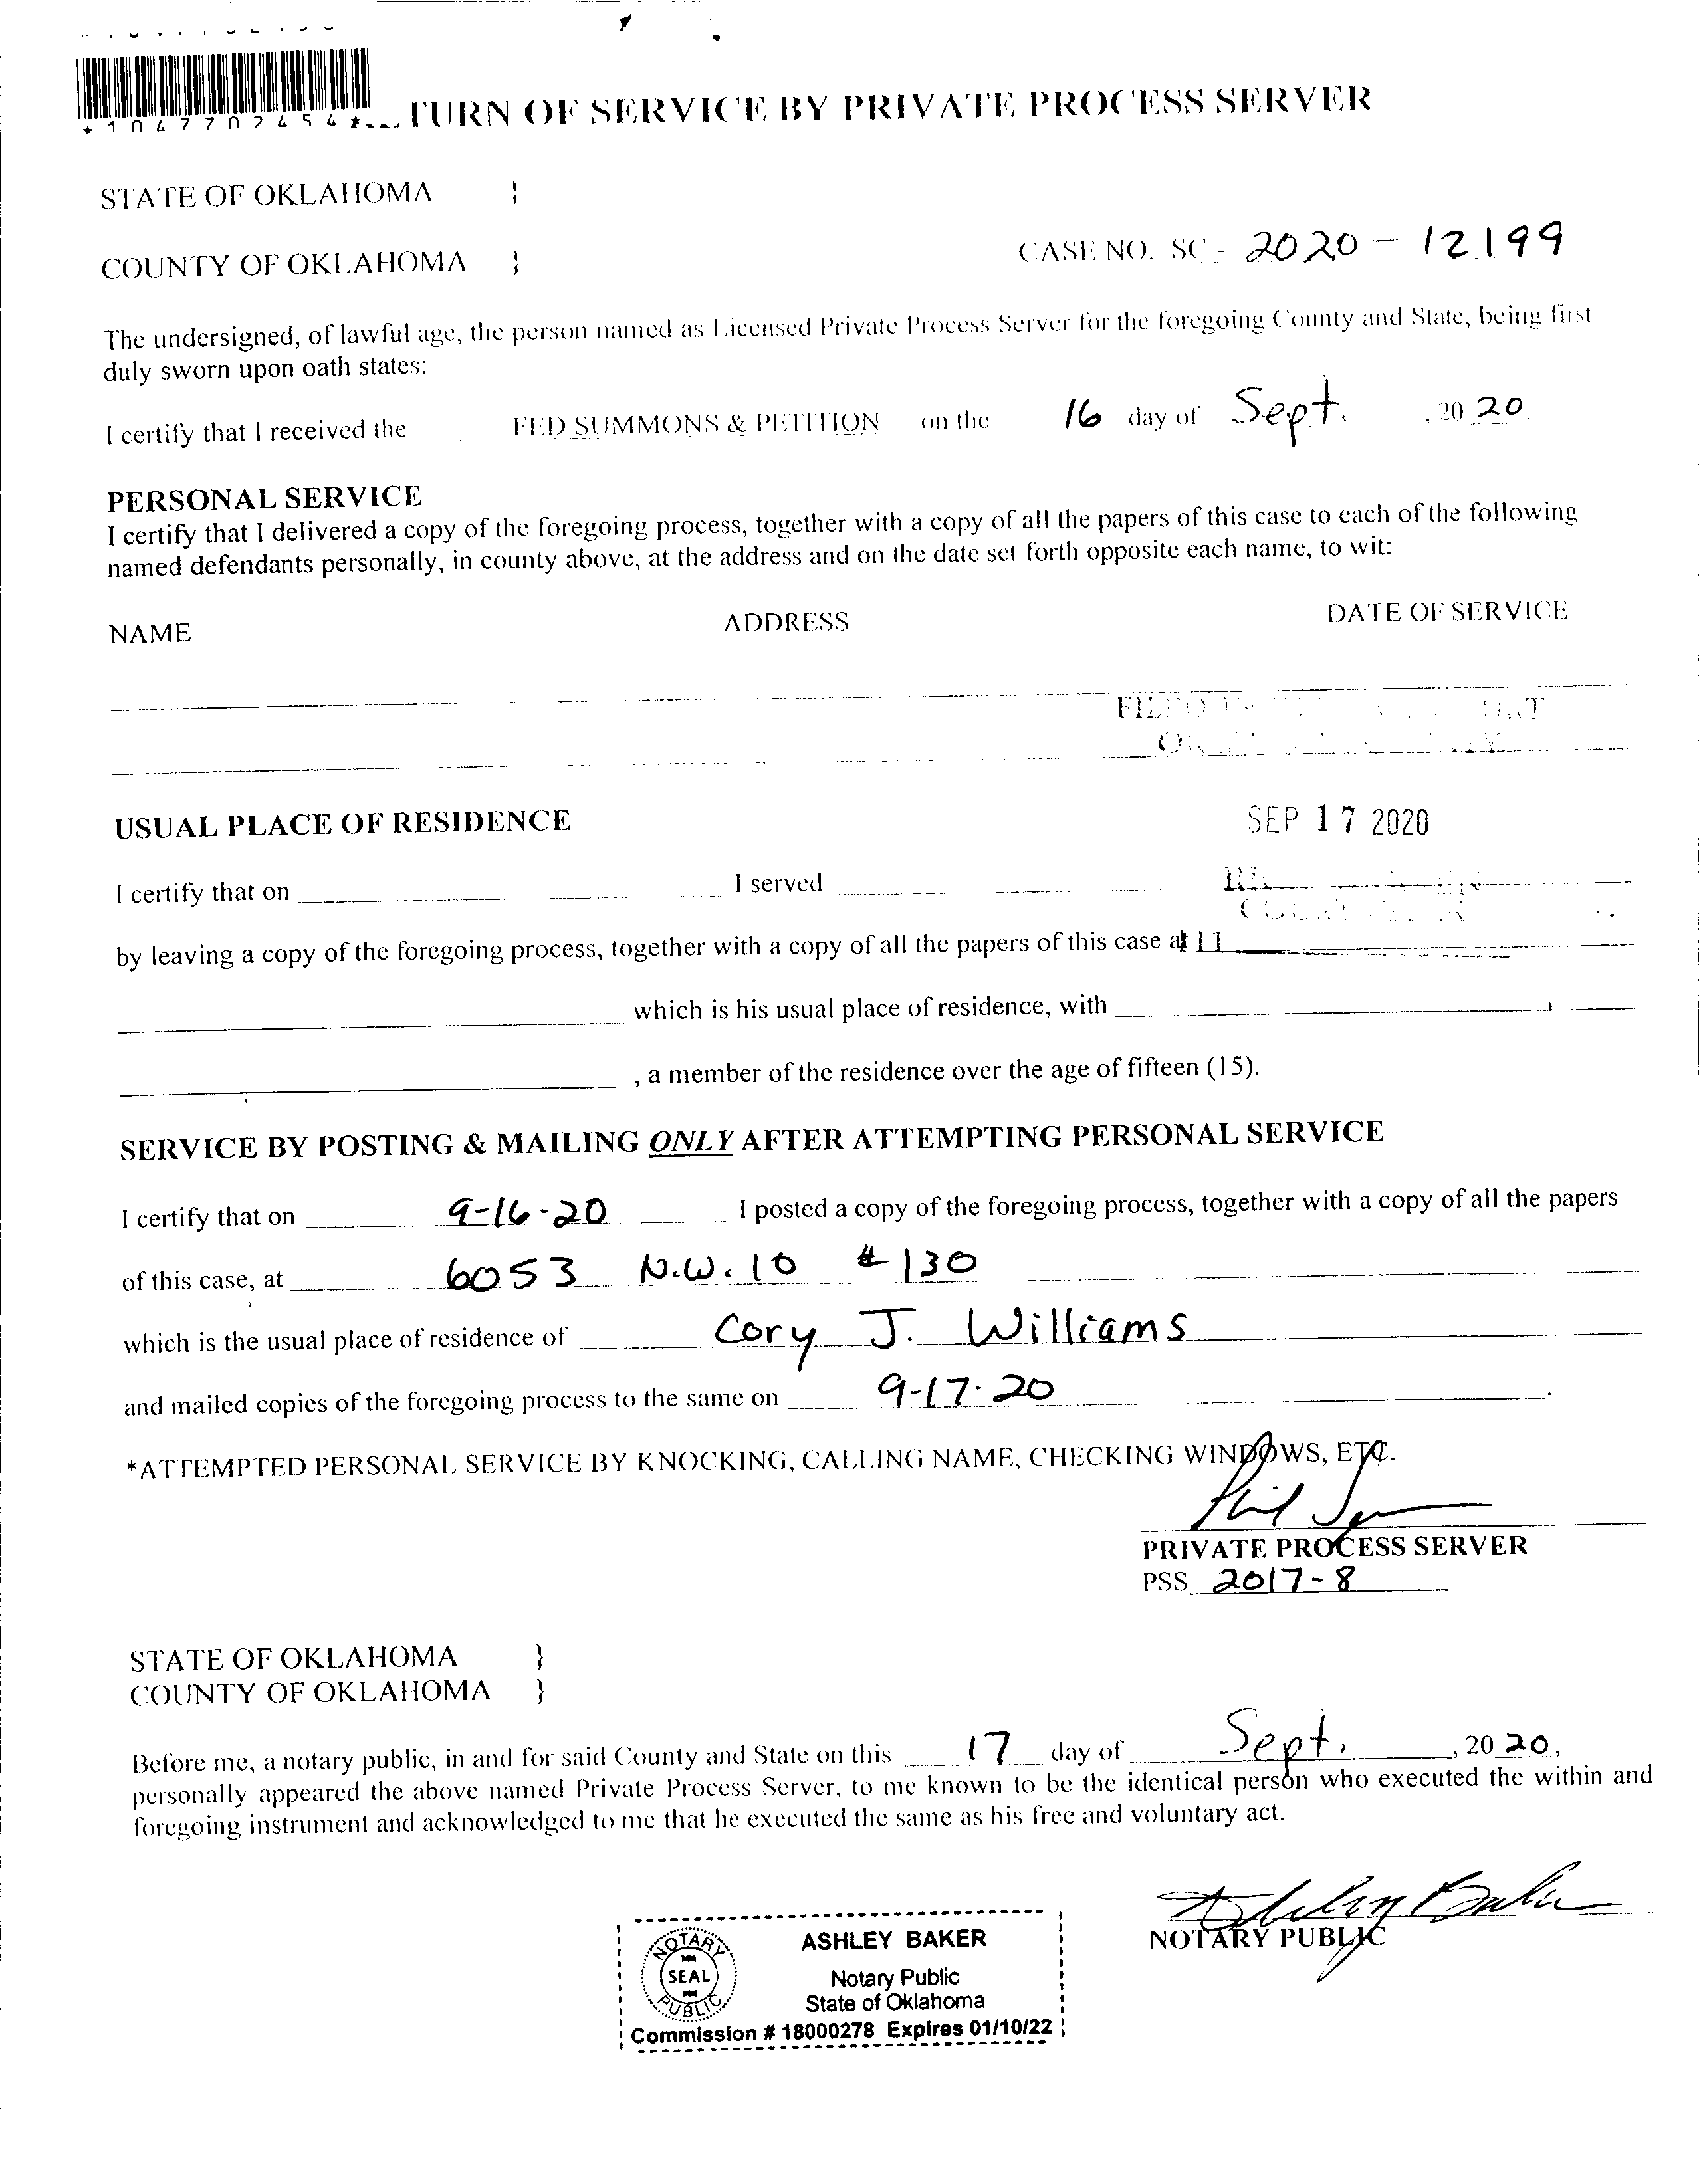 *1047702454*
TURN OF SERVICE BY PRIVATE PROCESS SERVER
STATE OF OKLAHOMA }
COUNTY OF OKLAHOMA }
CASE NO. SC - 2020 - 12199
The undersigned, of lawful age, the person named as Licensed Private Process Server for the foregoing County and State, being first
duly sworn upon oath states:
I certify that I received the FED SUMMONS & PETITION on the 16 day of Sept. , 20 20.
PERSONAL SERVICE
I certify that I delivered a copy of the foregoing process, together with a copy of all the papers of this case to each of the following
named defendants personally, in county above, at the address and on the date set forth opposite each name, to wit:
NAME ADDRESS DATE OF SERVICE
USUAL PLACE OF RESIDENCE
SEP 17 2020
I certify that on I served
by leaving a copy of the foregoing process, together with a copy of all the papers of this case at
which is his usual place of residence, with
, a member of the residence over the age of fifteen (15).
SERVICE BY POSTING & MAILING ONLY AFTER ATTEMPTING PERSONAL SERVICE
I certify that on 9-16-20 I posted a copy of the foregoing process, together with a copy of all the papers
of this case, at 6053 N.W. 10 #130
which is the usual place of residence of Cory J. Williams
and mailed copies of the foregoing process to the same on 9-17-20.
*ATTEMPTED PERSONAL SERVICE BY KNOCKING, CALLING NAME, CHECKING WINDOWS, ETC.
PRIVATE PROCESS SERVER
PSS 2017-8
STATE OF OKLAHOMA }
COUNTY OF OKLAHOMA }
Before me, a notary public, in and for said County and State on this 17 day of Sept. , 20 20,
personally appeared the above named Private Process Server, to me known to be the identical person who executed the within and
foregoing instrument and acknowledged to me that he executed the same as his free and voluntary act.
Ashley Baker
NOTARY PUBLIC
NOTARY PUBLIC
SEAL
ASHLEY BAKER
Notary Public
State of Oklahoma
Commission # 18000278 Expires 01/10/22